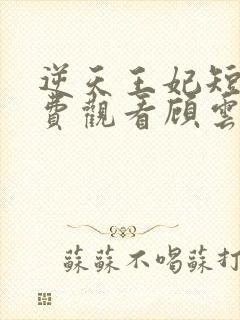 逆天王妃短
費觀看顾雲
蘇蘇不喝蘇打